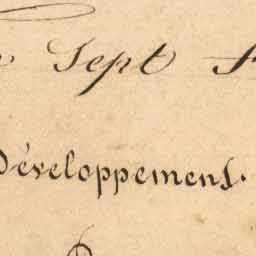 Sept
Développement.